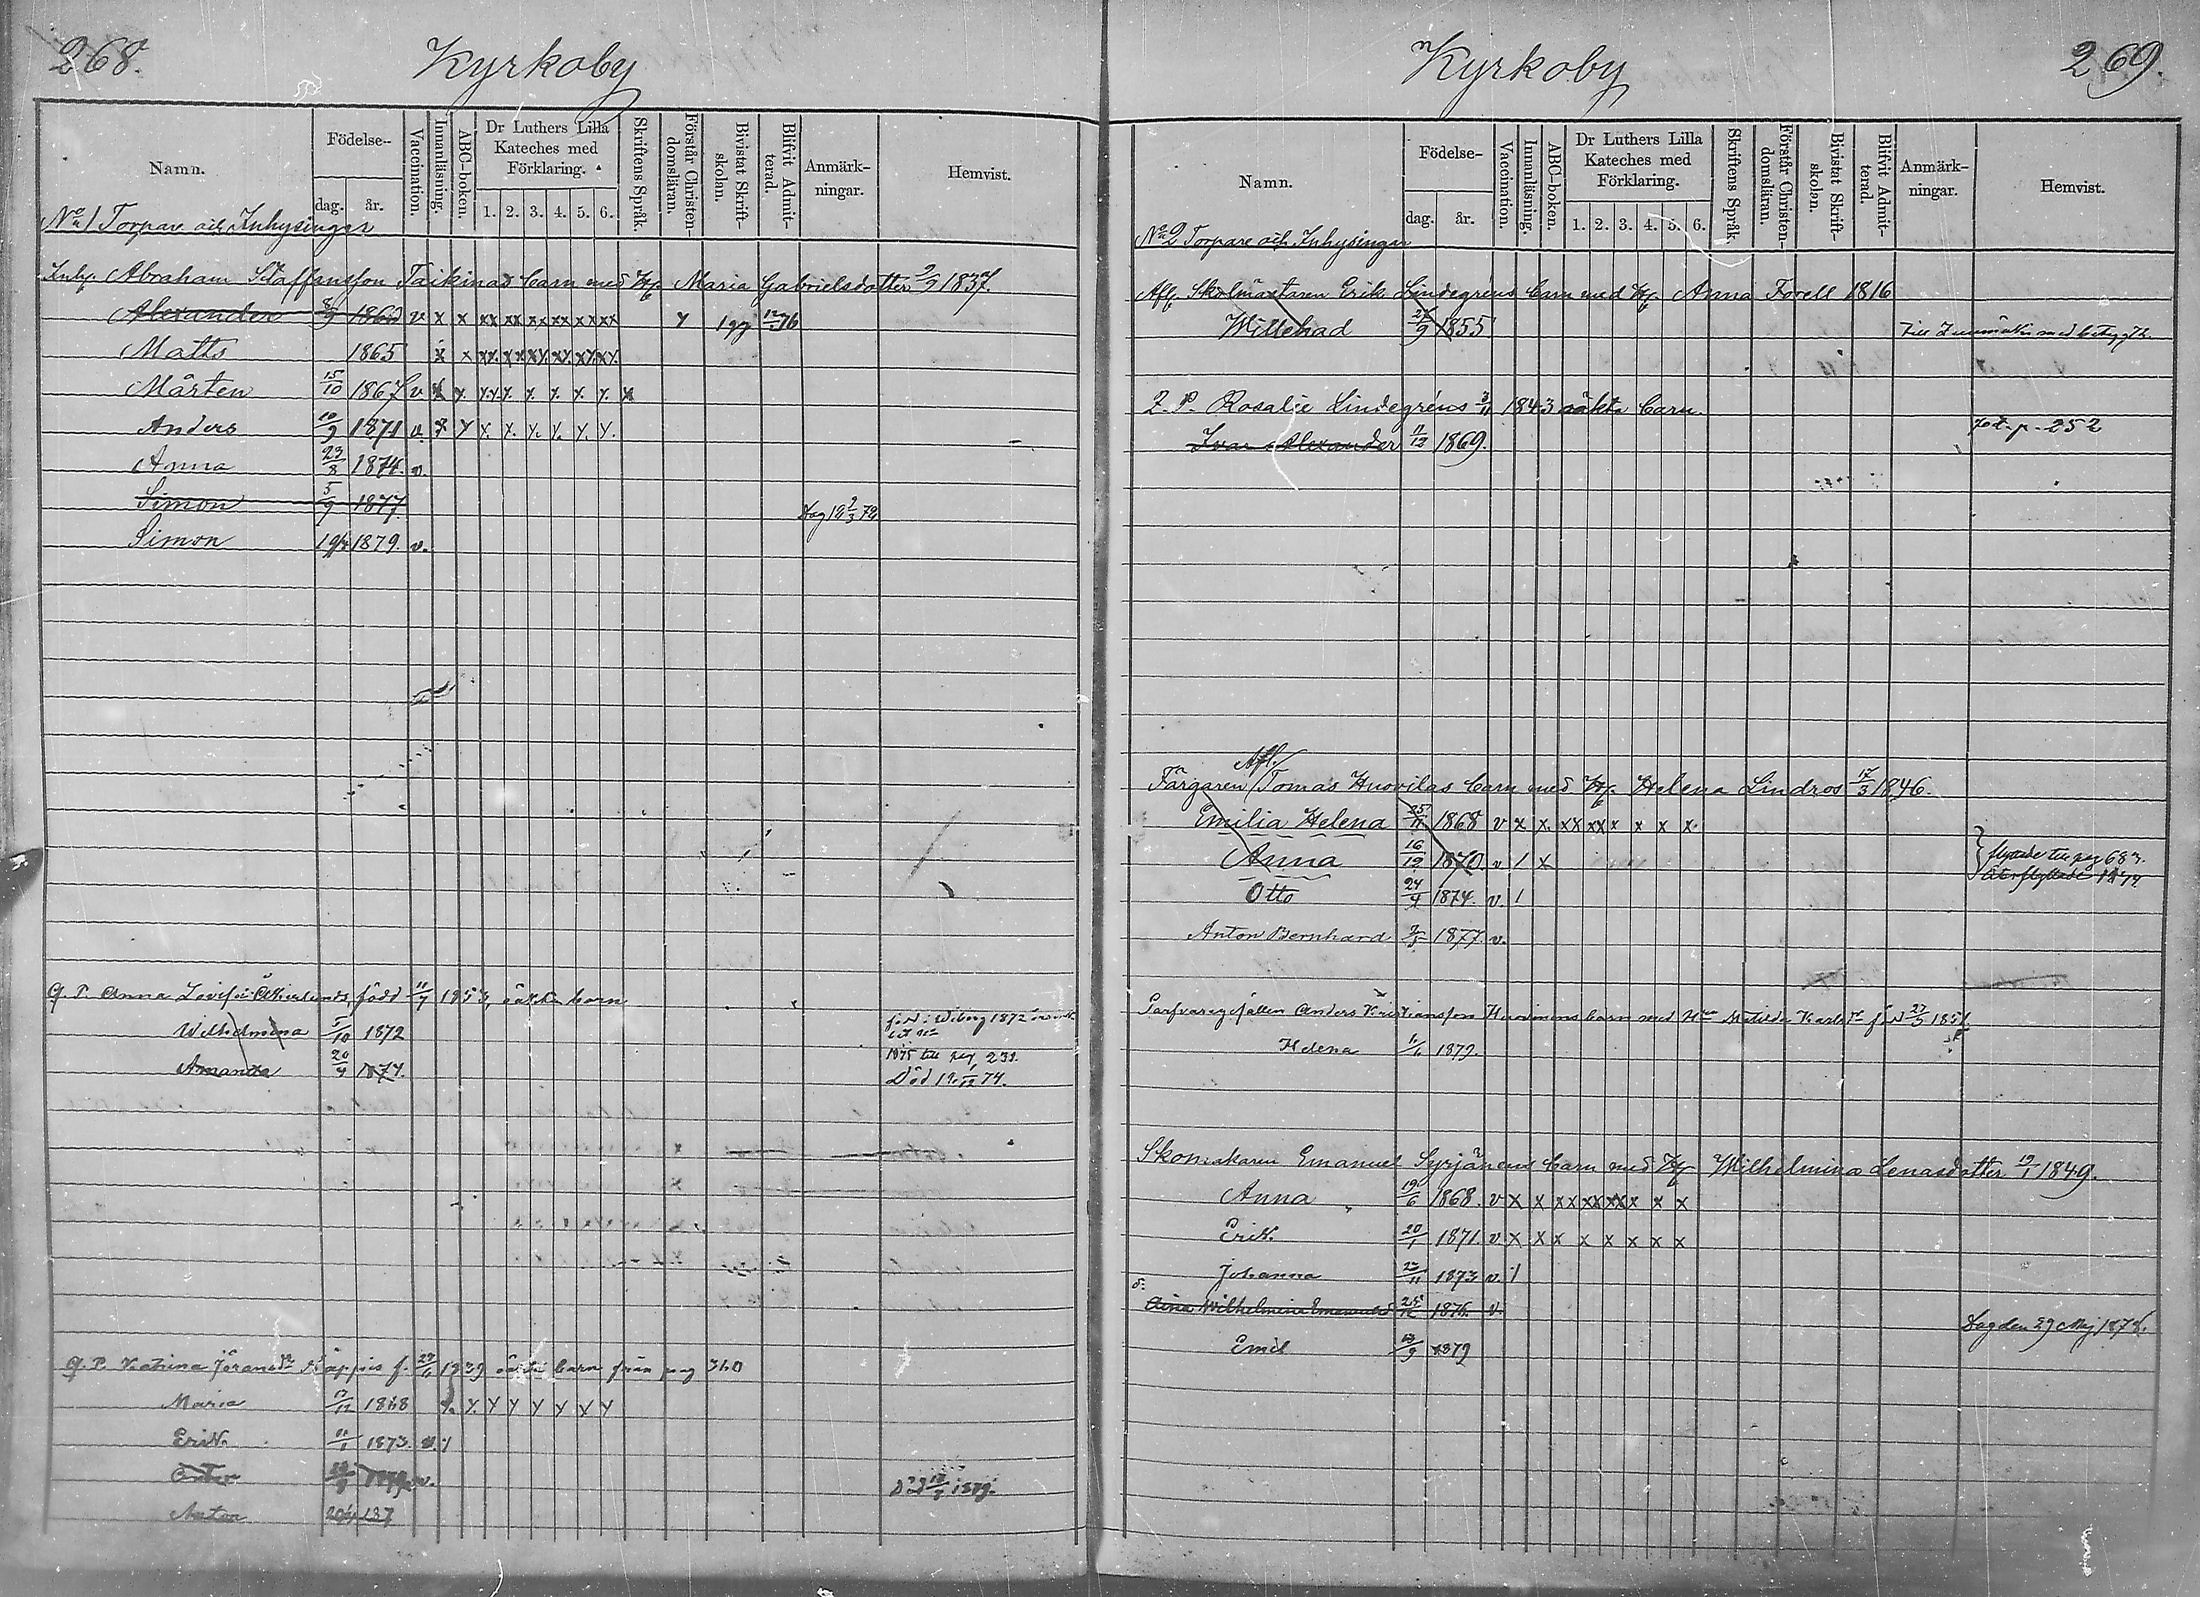 268.
Kyrkoby
Namn. Födelse- dag. år. Vaccination. Innanläsning. ABC-boken. Dr Luthers Lilla Kateches med Förklaring. 1. 2. 3. 4. 5. 6. Skriftens Språk. Förstår Christendomsläran. Bivistat Skriftskolan. Blifvit Admitterad. Anmärkningar. Hemvist.
No 1 Torpare och Inhysingar
Inh. Abraham Staffansson Taikinas barn med H. Maria Gabrielsdotter 2/9 1837
Alexander 8/9 1860 v x x xx xx xx xx xx xx
Matts 1865 x x xx xx xx xx xx xx
Mårten 15/10 1867 v x x xx x x x x x x
Anders 10/9 1871 v. x x x x x x x x
Anna 23/8 1874. v.
Simon 5/9 1877.
Simon 1879. v.
Q. P. Anna Lovisa född 11/7 1853, oäkta barn
Wilhelmina 5/10 1872
Amanda 20/4 1874.
1875 till pag. 231.
Död 74.
Q. P. Katrina f. 1839 oäkta barn från pag 360
Maria 1868
Erik 11/1 1873. v.
Död 1879.
Anton
269.
Kyrkoby
Namn. Födelse- dag. år. Vaccination. Innanläsning. ABC-boken. Dr Luthers Lilla Kateches med Förklaring. 1. 2. 3. 4. 5. 6. Skriftens Språk. Förstår Christendomsläran. Bivistat Skriftskolan. Blifvit Admitterad. Anmärkningar. Hemvist.
No 2 Torpare och Inhysingar
Afl. Skolmästaren Eriks Lindegréns barn med H. Anna Forell 1816
Willehad 27/9 1855
Q. P. Rosalie Lindegréns 3/11 1843 oäkta barn.
Ivar Alexander 11/12 1869.
p. 252
Afl.
Färgaren Tomas Huovilas barn med H. Helena Lindros 17/3 1846.
Emilia Helena 25/11 1868 v x x. xx xx x x x x.
Anna 16/12 1870. v / x
flyttade till pag 683.
återflyttade
Otto 24/4 1874. v. /
Anton Bernhard 1877. v.
Garfvaregesällen Anders Kristiansson Huovinens barn med Matilda född 1851
Helena 1879.
Skomakaren Emanuel Syrjänens barn med H. Wilhelmina Lenasdotter 19/1 1849.
Anna 19/6 1868. v x x xx xx xx x x x
Erik. 20/1 1871. v x x x x x x x x
Johanna 23/11 1873 v. /
Aina Wilhelmina 1876. v.
Dog den 29 Maj 1878.
Emil 1879